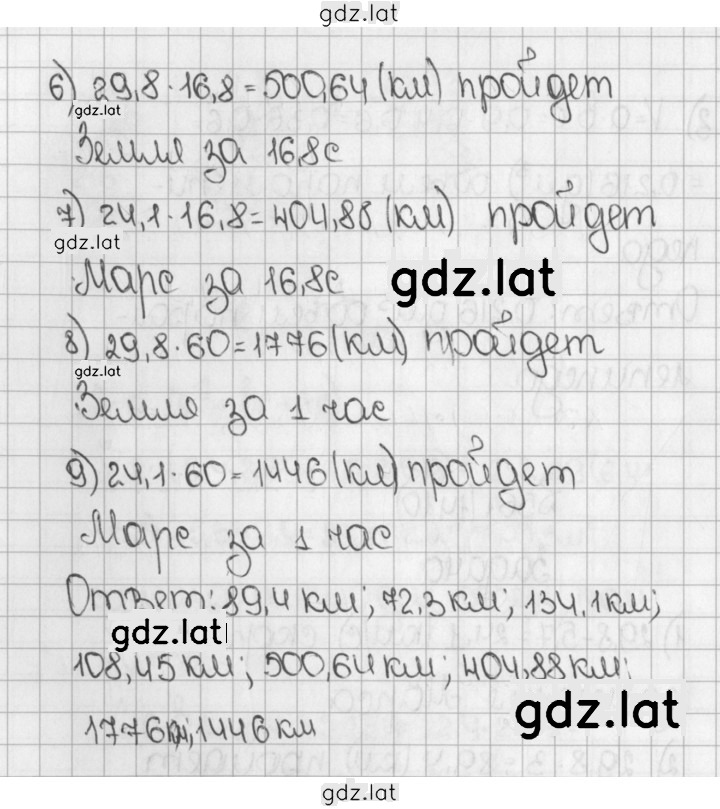 gdz.lat
6) 29,8·16,8=500,64(км) пройдет
gdz.lat
Земля за 16,8с
7) 24,1·16,8=404,88(км) пройдет
gdz.lat
Марс за 16,8с
gdz.lat
8) 29,8·60=1776(км) пройдет
gdz.lat
Земля за 1 час
9) 24,1·60=1446(км) пройдет
Марс за 1 час
Ответ: 89,4 км; 72,3км; 134,1км;
gdz.lat
108,45 км; 500,64 км; 404,88 км;
gdz.lat
1776км; 1446 км
gdz.lat